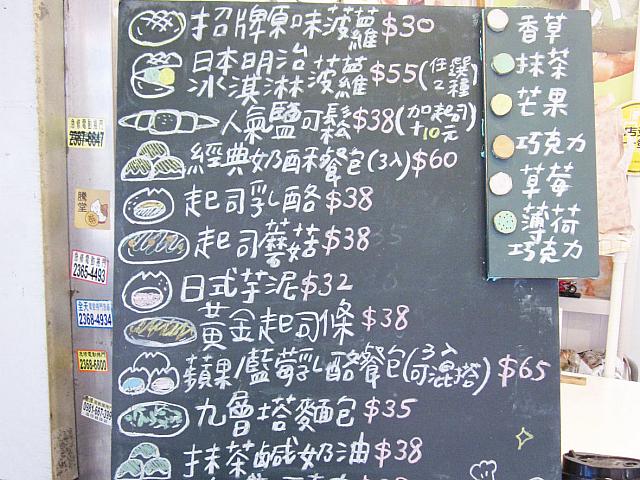 招牌原味菠蘿$30
日本明治
冰淇淋菠蘿$55(任選2種)
人氣鹽可鬆$38(加起司+10元)
經典奶酥餐包(3入)$60
起司乳酪$38
起司蘑菇$38
日式芋泥$32
黃金起司條$38
蘋果/藍莓乳酪餐包(3入可混搭)$65
九層塔麵包$35
抹茶鹹奶油$38
香草
抹茶
芒果
巧克力
草莓
薄荷
巧克力
2367-6647
騰堂
2365-4493
2368-4934
2368-6600